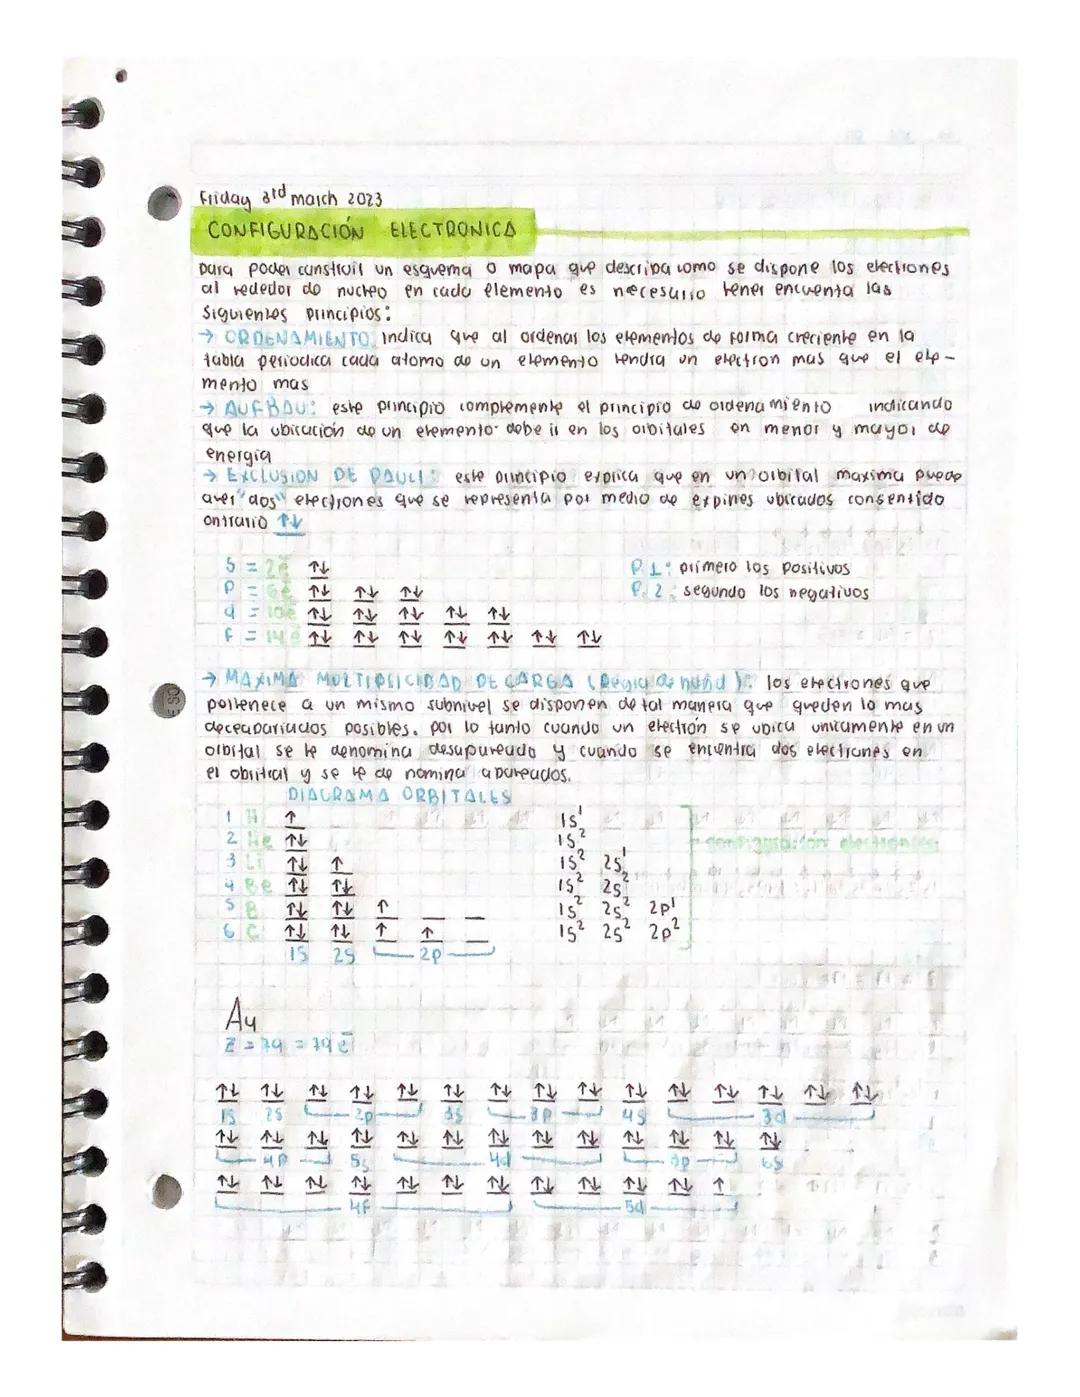 Friday 3rd march 2023
CONFIGURACIÓN ELECTRONICA
para poder construir un esquema o mapa que describa como se dispone los electrones
al rededor do nucleo en cada elemento es necesario tener encuenta las
siguientes principios:
→ ORDENAMIENTO: indica que al ordenar los elementos de forma creciente en la
tabla periodica cada atomo de un elemento tendra un electron mas que el ele-
mento mas
→ AUFBAU: este principio complemente el principio de ordenamiento indicando
que la ubicación de un elemento debe ir en los orbitales en menor y mayor de
energia
→ EXCLUSION DE PAULI: este principio explica que en un orbital maxima puede
aver "dos" electrones que se representa por medio de expines ubicados consentido
ontrario ↑↓
S = 2e ↑↓
P = 6e ↑↓ ↑↓ ↑↓
d = 10e ↑↓ ↑↓ ↑↓ ↑↓ ↑↓
F = 14e ↑↓ ↑↓ ↑↓ ↑↓ ↑↓ ↑↓ ↑↓
P.1: primero los positivos
P.2: segundo los negativos
→ MAXIMA MULTIPLICIDAD DE CARGA (Regla de hund): los electrones que
pertenece a un mismo subnivel se disponen de tal manera que queden lo mas
posibles. por lo tanto cuando un electrón se ubica unicamente en un
orbital se le denomina desapareado y cuando se encuentra dos electrones en
el obritral y se le de nomina apareados.
DIAGRAMA ORBITALES
1 H ↑ 1s¹
2 He ↑↓ 1s²
3 Li ↑↓ ↑ 1s² 2s¹
4 Be ↑↓ ↑↓ 1s² 2s²
5 B ↑↓ ↑↓ ↑ _ _ 1s² 2s² 2p¹
6 C ↑↓ ↑↓ ↑ ↑ _ 1s² 2s² 2p²
1S 2S 2p
configuración electronica
Au
Z = 79 = 79 e⁻
↑↓ ↑↓ ↑↓ ↑↓ ↑↓ ↑↓ ↑↓ ↑↓ ↑↓ ↑↓ ↑↓ ↑↓ ↑↓ ↑↓ ↑↓
1S 2S 2p 3s 3p 4s 3d
↑↓ ↑↓ ↑↓ ↑↓ ↑↓ ↑↓ ↑↓ ↑↓ ↑↓ ↑↓ ↑↓ ↑↓ ↑↓
4p 5s 4d 5p 6s
↑↓ ↑↓ ↑↓ ↑↓ ↑↓ ↑↓ ↑↓ ↑↓ ↑↓ ↑↓ ↑↓ ↑
4f 5d